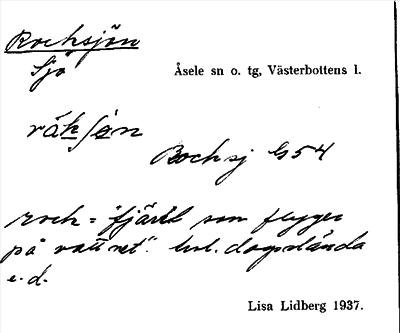 Rocksjön
Sjö
Åsele sn o. tg, Västerbottens l.
råkʃön
Bocksj G54
rock = "fjäril som flyger
på vattnet". trol. dagslända
e.d.
Lisa Lidberg 1937.